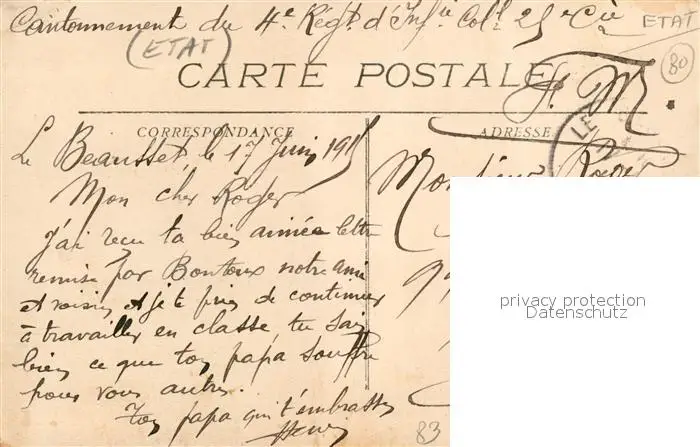 Cantonnement du 4e Regt d'Infie Colle 25e Cie
ETAT
ETAT
80
CARTE POSTALE
F. M.
CORRESPONDANCE
ADRESSE
Le Beausset, le 17 Juin 1915
Mon cher Roger
J'ai reçu ta bien aimée lettre
remise par Boutoux notre ami
et voisin et je te prie de continuer
à travailler en classe tu sais
bien ce que ton papa souffre
pour vous autres.
Ton papa qui t'embrasse
Henri
Monsieur Roger
privacy protection
Datenschutz
83